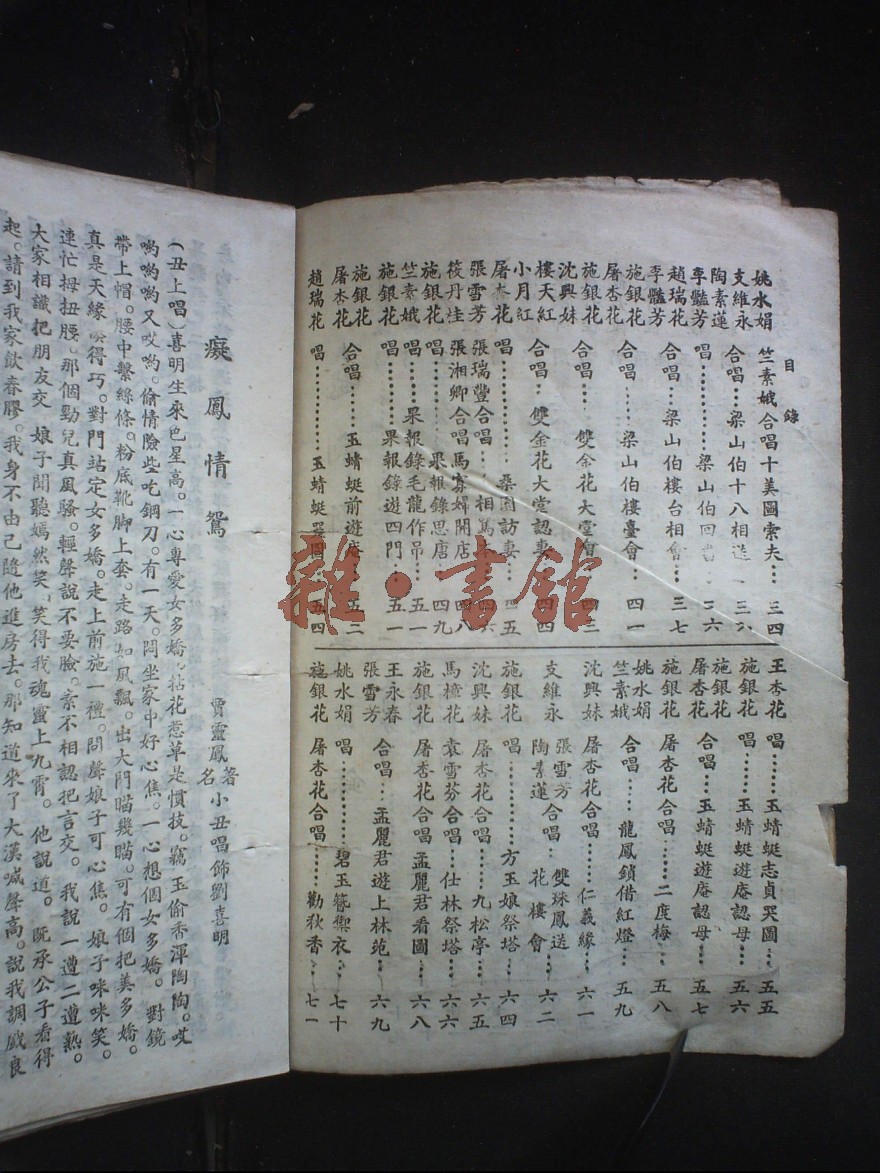 目錄
姚水娟 竺素娥合唱十美圖索夫…三四
支維永
陶素蓮 合唱…梁山伯十八相送
李豔芳 唱………梁山伯回
趙瑞花
李豔芳 合唱…梁山伯樓台相會…三七
施銀花
屠杏花 合唱…梁山伯樓臺會…四一
施銀花
沈興妹 合唱…雙金花大堂會
樓天紅
小月紅 合唱…雙金花大堂認妻
屠杏花 唱………桑園訪妻
張雪芳 張瑞豐合唱…相罵
筱丹桂 張湘卿合唱馬寡婦開店…四八
施銀花 唱………果報錄思唐…四九
竺素娥 唱……果報錄毛龍作吊…五一
施銀花 唱……果報錄遊四門…五一
施銀花
屠杏花 合唱…玉蜻蜓前遊庵…五二
趙瑞花 唱………玉蜻蜓 圖…五四
王杏花 唱…玉蜻蜓志貞哭圖…五五
施銀花 唱…玉蜻蜓遊庵認母…五六
屠杏花 合唱…玉蜻蜓遊庵認母…五七
施銀花 屠杏花合唱……二度梅…五八
姚水娟
竺素娥 合唱……龍鳳鎖借紅燈…五九
沈興妹 屠杏花合唱……仁義緣…六一
支維永 張雪芳
陶素蓮 合唱…雙珠鳳送花樓會…六二
施銀花 唱………方玉娘祭塔…六四
沈興妹 屠杏花合唱……九松亭…六五
馬樟花 袁雪芬合唱…仕林祭塔…六六
施銀花 屠杏花合唱孟麗君看圖…六八
王永春
張雪芳 合唱…孟麗君遊上林苑…六九
姚水娟 唱………碧玉簪禦衣…七十
施銀花 屠杏花合唱……勸狄香…七一
癡鳳情鴛
賈靈鳳著 名小丑唱飾劉喜明
(丑上唱)喜明生來色星高。一心專愛女多嬌。拈花惹草是慣技。竊玉偷香渾陶陶。哎
喲喲喲又哎喲。偷情險些吃鋼刀。有一天。悶坐家中好心焦。一心想個女多嬌。對鏡
帶上帽。腰中繫絲條。粉底靴脚上套。走路如風飄。出大門瞄幾瞄。可有個把美多嬌。
真是天緣湊得巧。對門站定女多嬌。走上前施一禮。問聲娘子可心焦。娘子咪咪笑。
連忙拇扭腰。那個勁兒真風騷。輕聲說不要臉。素不相認把言交。我說一遭二遭熟。
大家相識把朋友交 娘子聞聽嫣然笑。笑得我魂靈上九霄。他說道。既承公子看得
起。請到我家飲春膠。我身不由己隨他進房去。那知道來了大漢喊聲高。說我調戲良